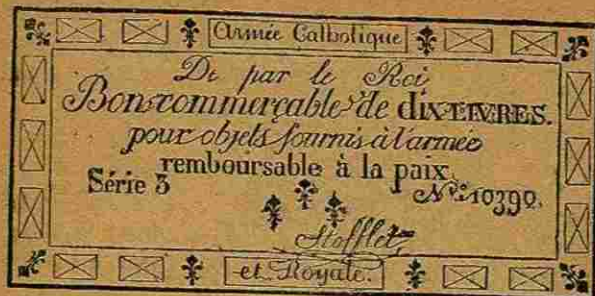 Armée Catholique
De par le Roi
Bon commerçable de DIX LIVRES.
pour objets fournis à l'armée
remboursable à la paix.
Série 3
N.° 10390.
Stofflet
et Royale.